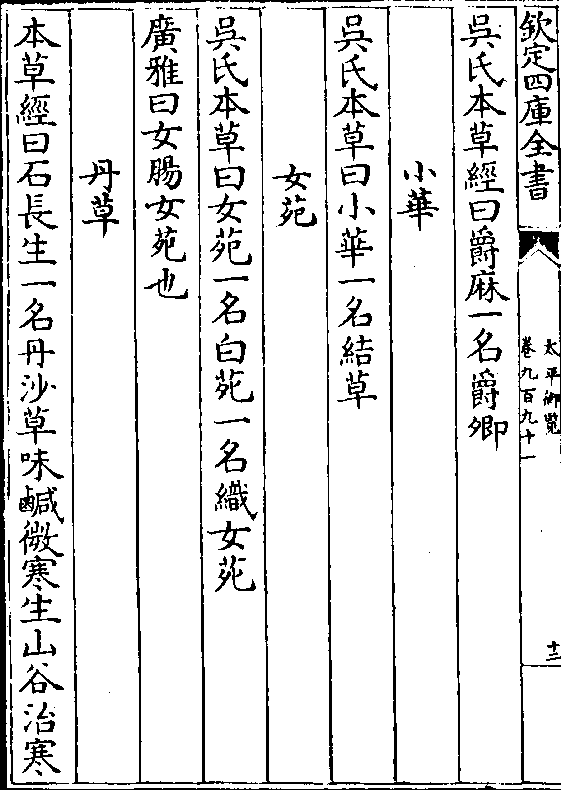 欽定四庫全書
太平御覽
卷九百九十一
十三
吳氏本草經曰爵麻一名爵卿
小華
吳氏本草曰小華一名結草
女苑
吳氏本草曰女苑一名白苑一名織女苑
廣雅曰女腸女苑也
丹草
本草經曰石長生一名丹沙草味鹹微寒生山谷治寒